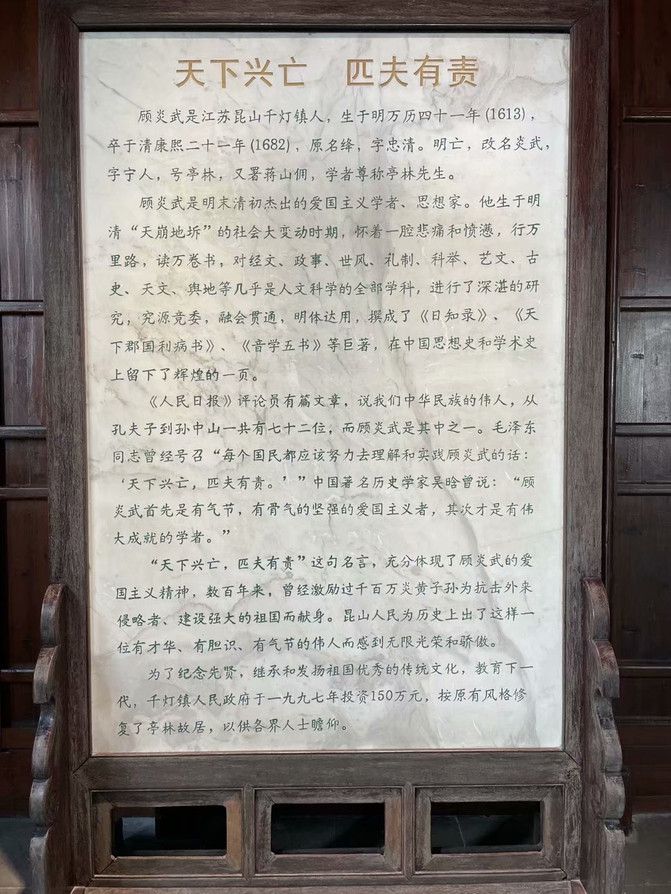 天下兴亡　匹夫有责
顾炎武是江苏昆山千灯镇人，生于明万历四十一年(1613)，
卒于清康熙二十一年(1682)，原名绛，字忠清。明亡，改名炎武，
字宁人，号亭林，又署蒋山佣，学者尊称亭林先生。
顾炎武是明末清初杰出的爱国主义学者、思想家。他生于明
清“天崩地坼”的社会大变动时期，怀着一腔悲痛和愤懑，行万
里路，读万卷书，对经文、政事、世风、礼制、科举、艺文、古
史、天文、舆地等几乎是人文科学的全部学科，进行了深湛的研
究，究源竟委，融会贯通，明体达用，撰成了《日知录》、《天
下郡国利病书》、《音学五书》等巨著，在中国思想史和学术史
上留下了辉煌的一页。
《人民日报》评论员有篇文章，说我们中华民族的伟人，从
孔夫子到孙中山一共有七十二位，而顾炎武是其中之一。毛泽东
同志曾经号召“每个国民都应该努力去理解和实践顾炎武的话：
‘天下兴亡，匹夫有责。’”中国著名历史学家吴晗曾说：“顾
炎武首先是有气节，有骨气的坚强的爱国主义者，其次才是有伟
大成就的学者。”
“天下兴亡，匹夫有责”这句名言，充分体现了顾炎武的爱
国主义精神，数百年来，曾经激励过千百万炎黄子孙为抗击外来
侵略者、建设强大的祖国而献身。昆山人民为历史上出了这样一
位有才华、有胆识、有气节的伟人而感到无限光荣和骄傲。
为了纪念先贤，继承和发扬祖国优秀的传统文化，教育下一
代，千灯镇人民政府于一九九七年投资150万元，按原有风格修
复了亭林故居，以供各界人士瞻仰。